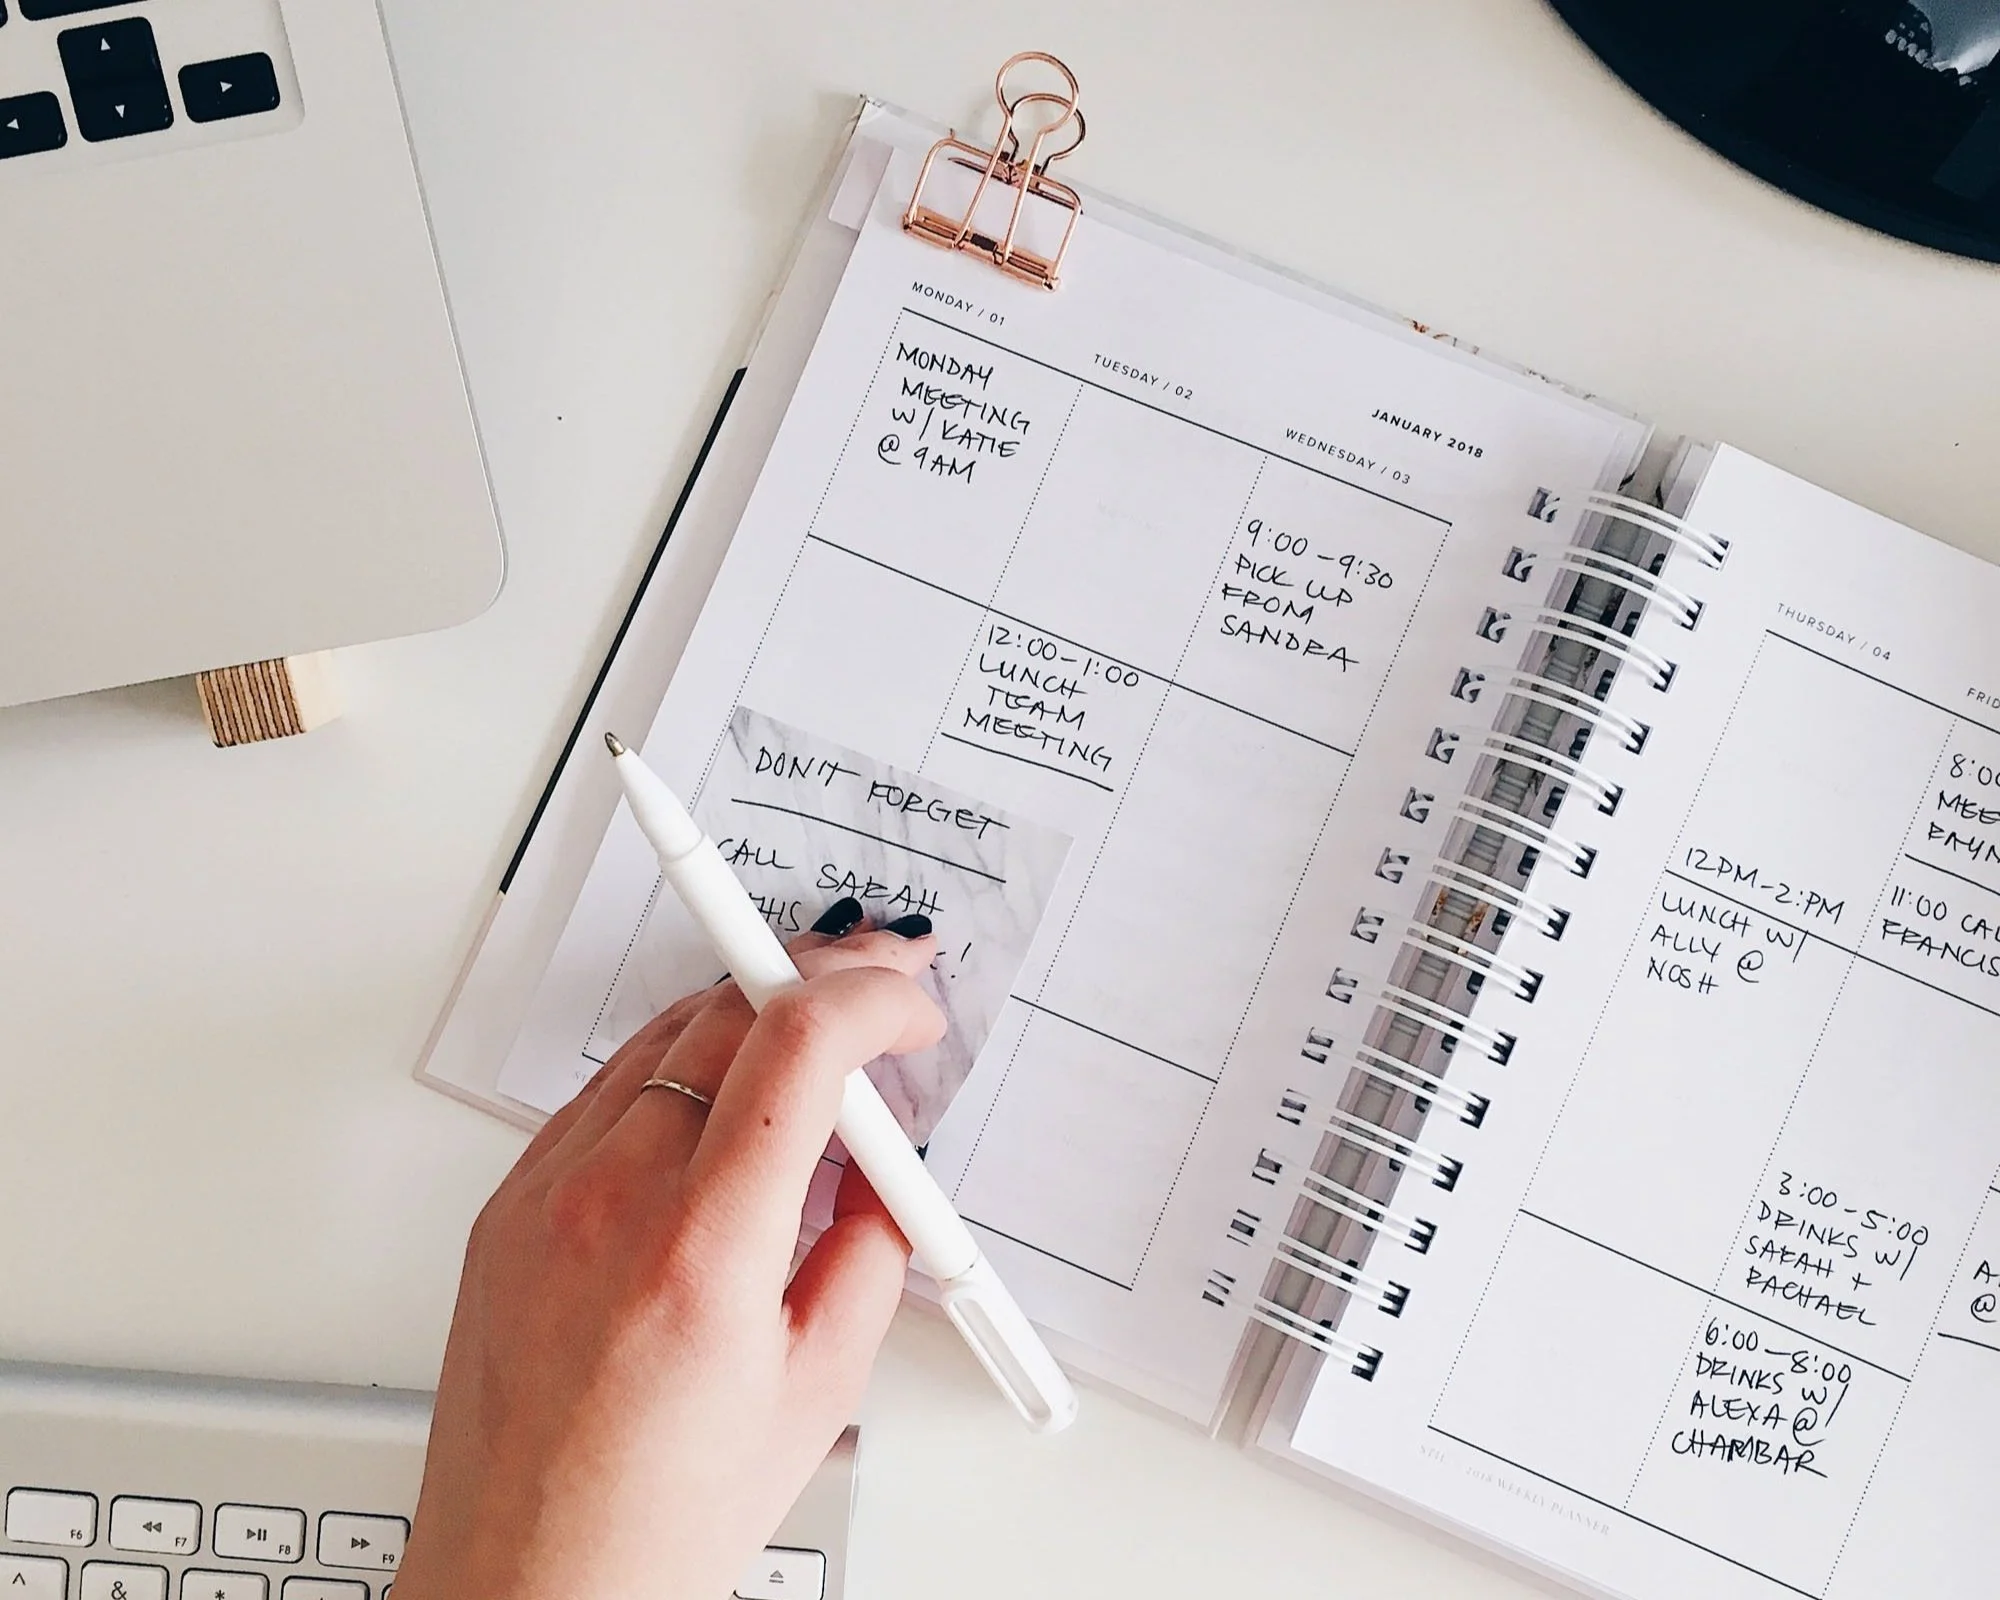 MONDAY / 01
MONDAY
MEETING
W/ KATIE
@ 9AM
TUESDAY / 02
12:00-1:00
LUNCH
TEAM
MEETING
JANUARY 2018
WEDNESDAY / 03
9:00-9:30
PICK UP
FROM
SANDRA
DON'T FORGET
CALL SARAH
THIS
!
THURSDAY / 04
12PM-2:PM
LUNCH W/
ALLY @
NOSH
FRID
8:00
MEE
RAYN
11:00 CAL
FRANCIS
3:00-5:00
DRINKS W/
SARAH +
RACHAEL
6:00-8:00
DRINKS W/
ALEXA @
CHAMBAR
A
@
2018 WEEKLY PLANNER
F6
F7
F8
F9
^
&
*